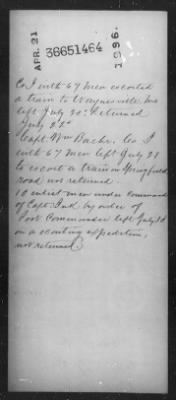 APR. 21
36651464
1996.
Co I with 67 men escorted
a train to Waynesville Mo
left July 20th Returned
July 22d
Capt. Wm Bachr. Co I
with 67 men left July 28
to escort a train on Springfield
road not returned.
10 enlist men under command
of Capt. Ind by order of
Post Commander left July 28
on a scouting expedition,
not returned.